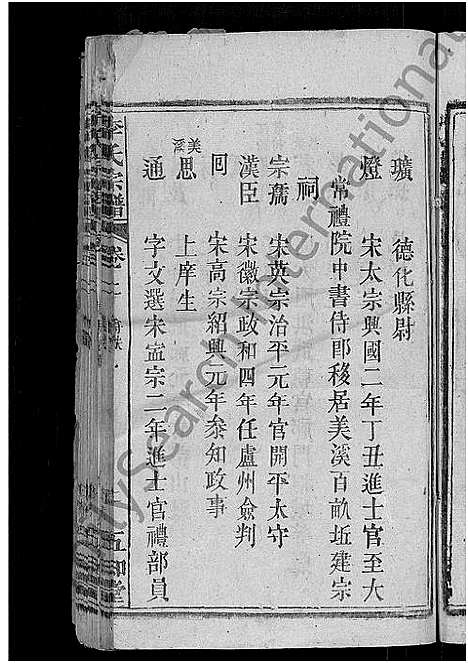 璜　德化縣尉
燈　宋太宗興國二年丁丑進士官至大
常禮院中書侍郎移居美溪百畝坵建宗
祠
宗儒　宋英宗治平元年官開平太守
漢臣　宋徽宗政和四年任盧州僉判
囘　宋高宗紹興元年叅知政事
美溪
思　上庠生
通　字文選宋寧宗二年進士官禮部員
李氏宗譜　卷一
五和堂
FamilySearch International